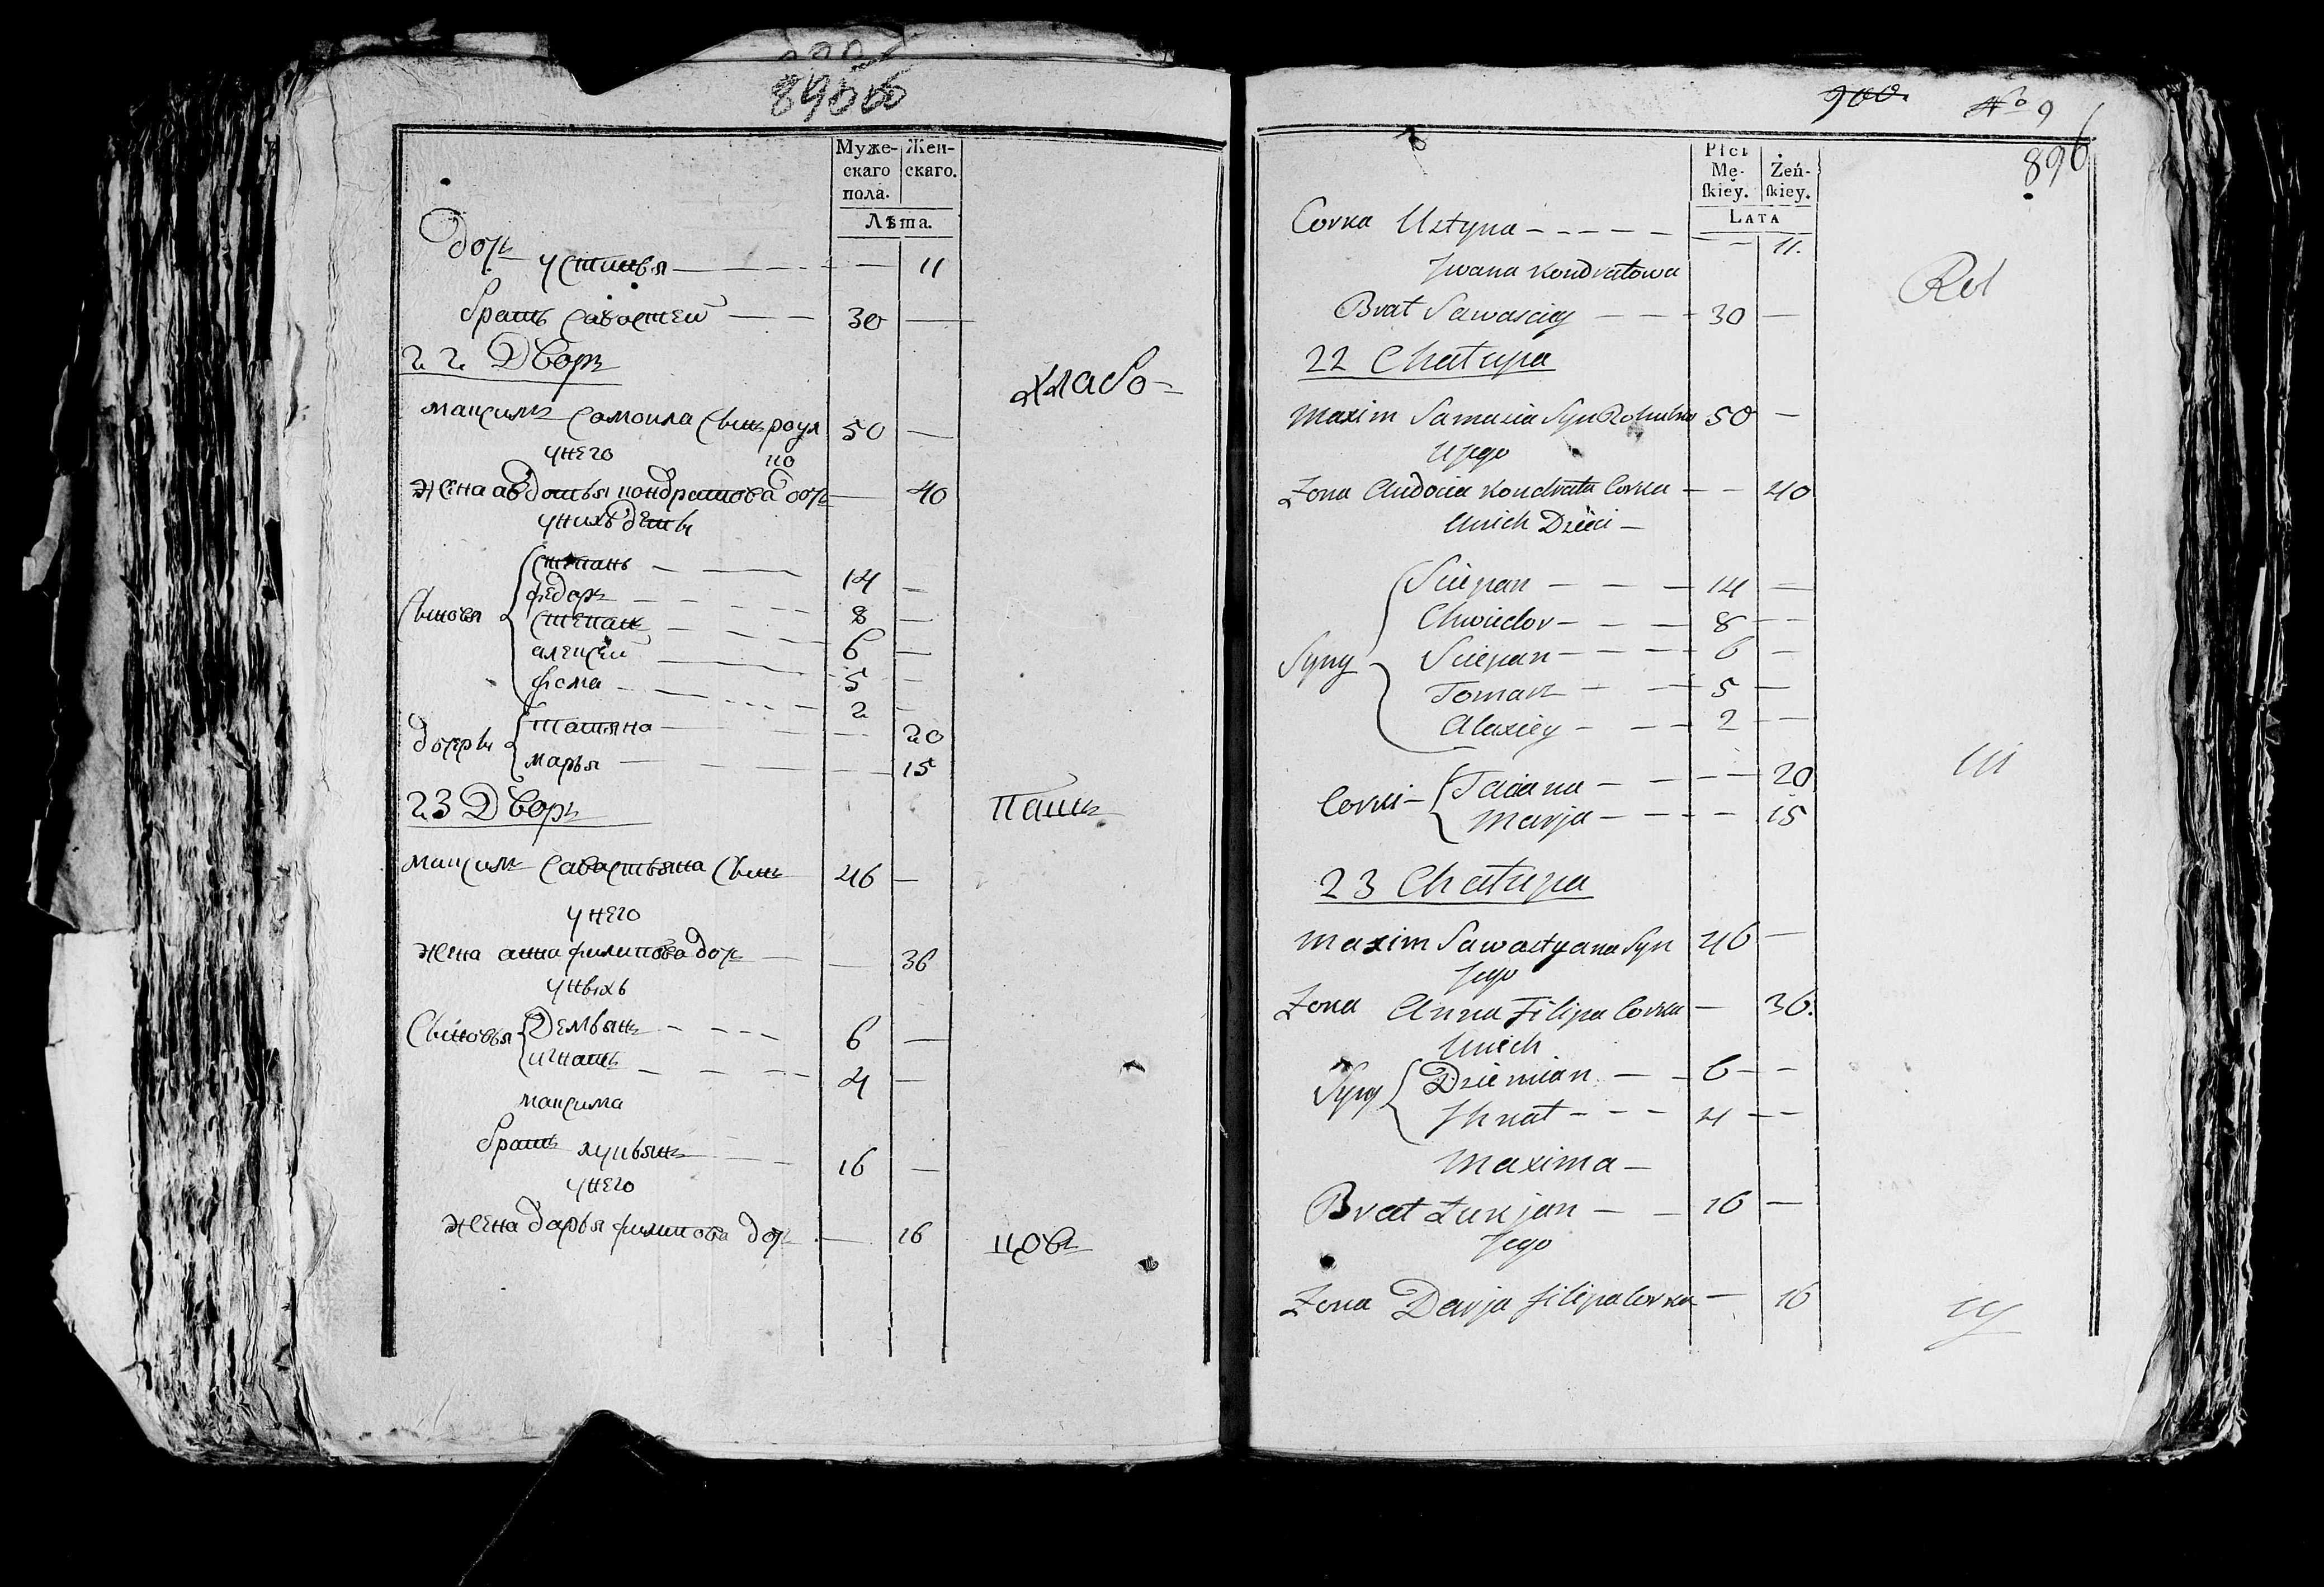 896
Муже-
скаго
пола.
Жен-
скаго.
Лѣта.
дочь устинья 11
братъ савастей 30
22 Дворъ
хлебо-
максимъ самоила сынъ рогул 50
ко
у него
жена авдотья кондратова дочь 40
у нихъ дети
сыновья
степанъ 14
федоръ 8
степанъ 6
алексей 5
фома 2
дочери
татьяна 20
марья 15
23 Дворъ
паш
максимъ савастьяна сынъ 46
у него
жена анна филипова дочь 36
у ныхъ
сыновья
Демьянъ 6
игнатъ 4
максима
братъ лукьянъ 16
у него
жена дарья филипова дочь 16
цовъ
900. No 9
896
Płci
Mę-
ſkiey.
Żeń-
ſkiey.
LATA
Corka Ustyna 11.
Jwana Kondratowa
Brat Sawasciey 30
Rol
22 Chałupa
Maxim Samuila Syn Rohulka 50
U jego
Zona Audocia Kondrata Corka 40
Unich Dzieci
Syny
Sciepan 14
Chwiedor 8
Sciepan 6
Tomasz 5
Alaxiey 2
Corki
Taciana 20
Marja 15
23 Chałupa
Maxim Sawastyana Syn 46
Jego
Zona Anna Filipa Corka 36.
Unich
Syny
Dziemian 6
Jhnat 4
Maxima
Brat Łukjan 16
Jego
Zona Darja filipa Corka 16